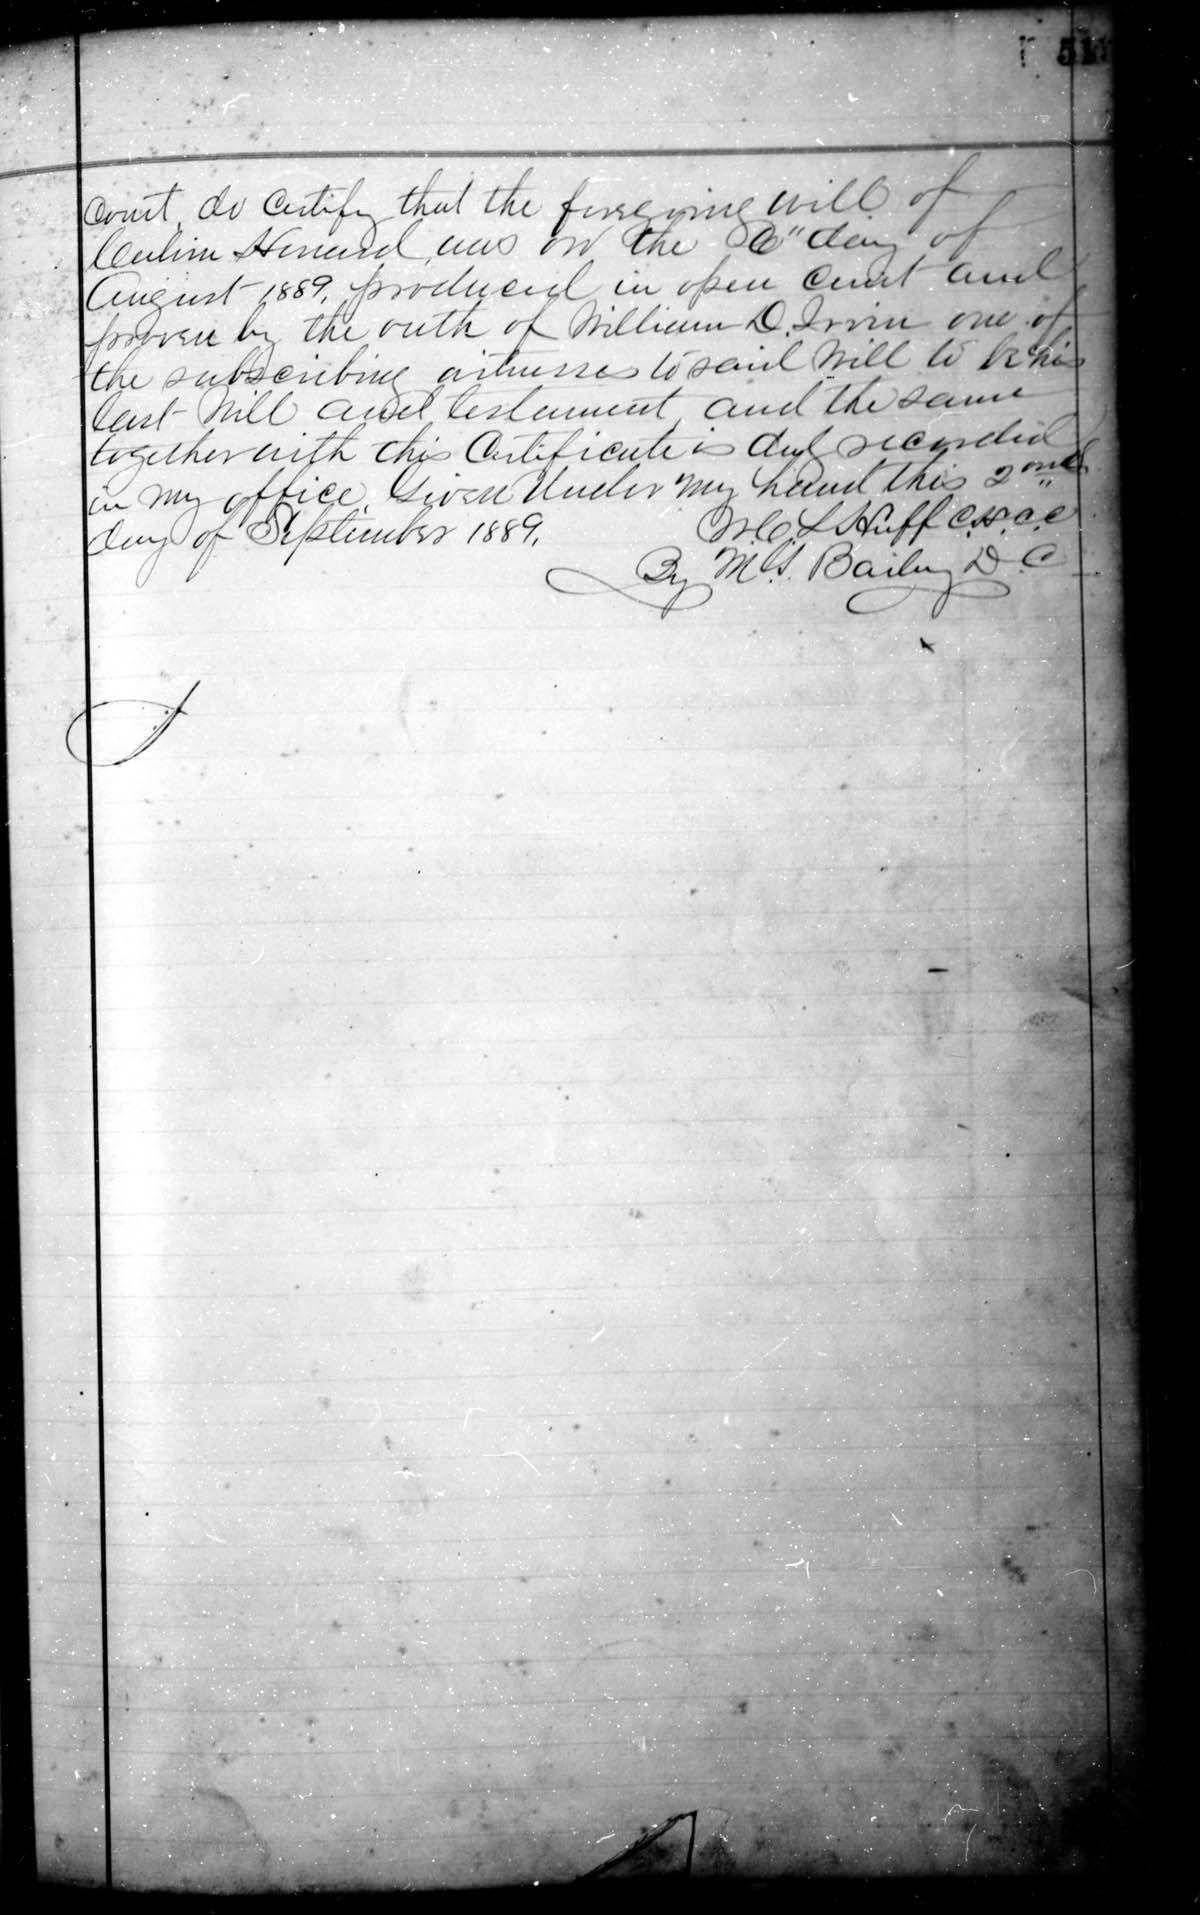 Court, do Certify that the foregoing will of
Howard, was on the 6" day of
August 1889, produced in open Court and
proven by the outh of William D. Irvin one of
the subscribing witnesses to said Will to be his
last Will and testament, and the same
together with this Certificate is duly recorded
in my office. Given Under my hand this 2ond
day of September 1889.
L Huff C.H.C.C
By M. G. Bailey D.C